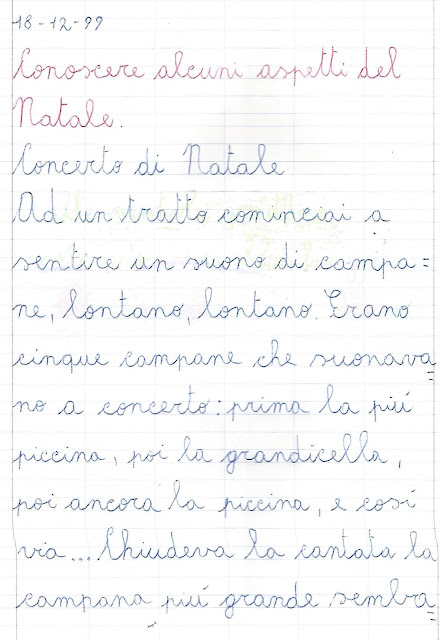 18-12-99
Conoscere alcuni aspetti del
Natale.
Concerto di Natale
Ad un tratto cominciai a
sentire un suono di campa=
ne, lontano, lontano. Erano
cinque campane che suonava=
no a concerto: prima la piú
piccina, poi la grandicella,
poi ancora la piccina, e cosí
via... Chiudeva la cantata la
campana piú grande sembra=